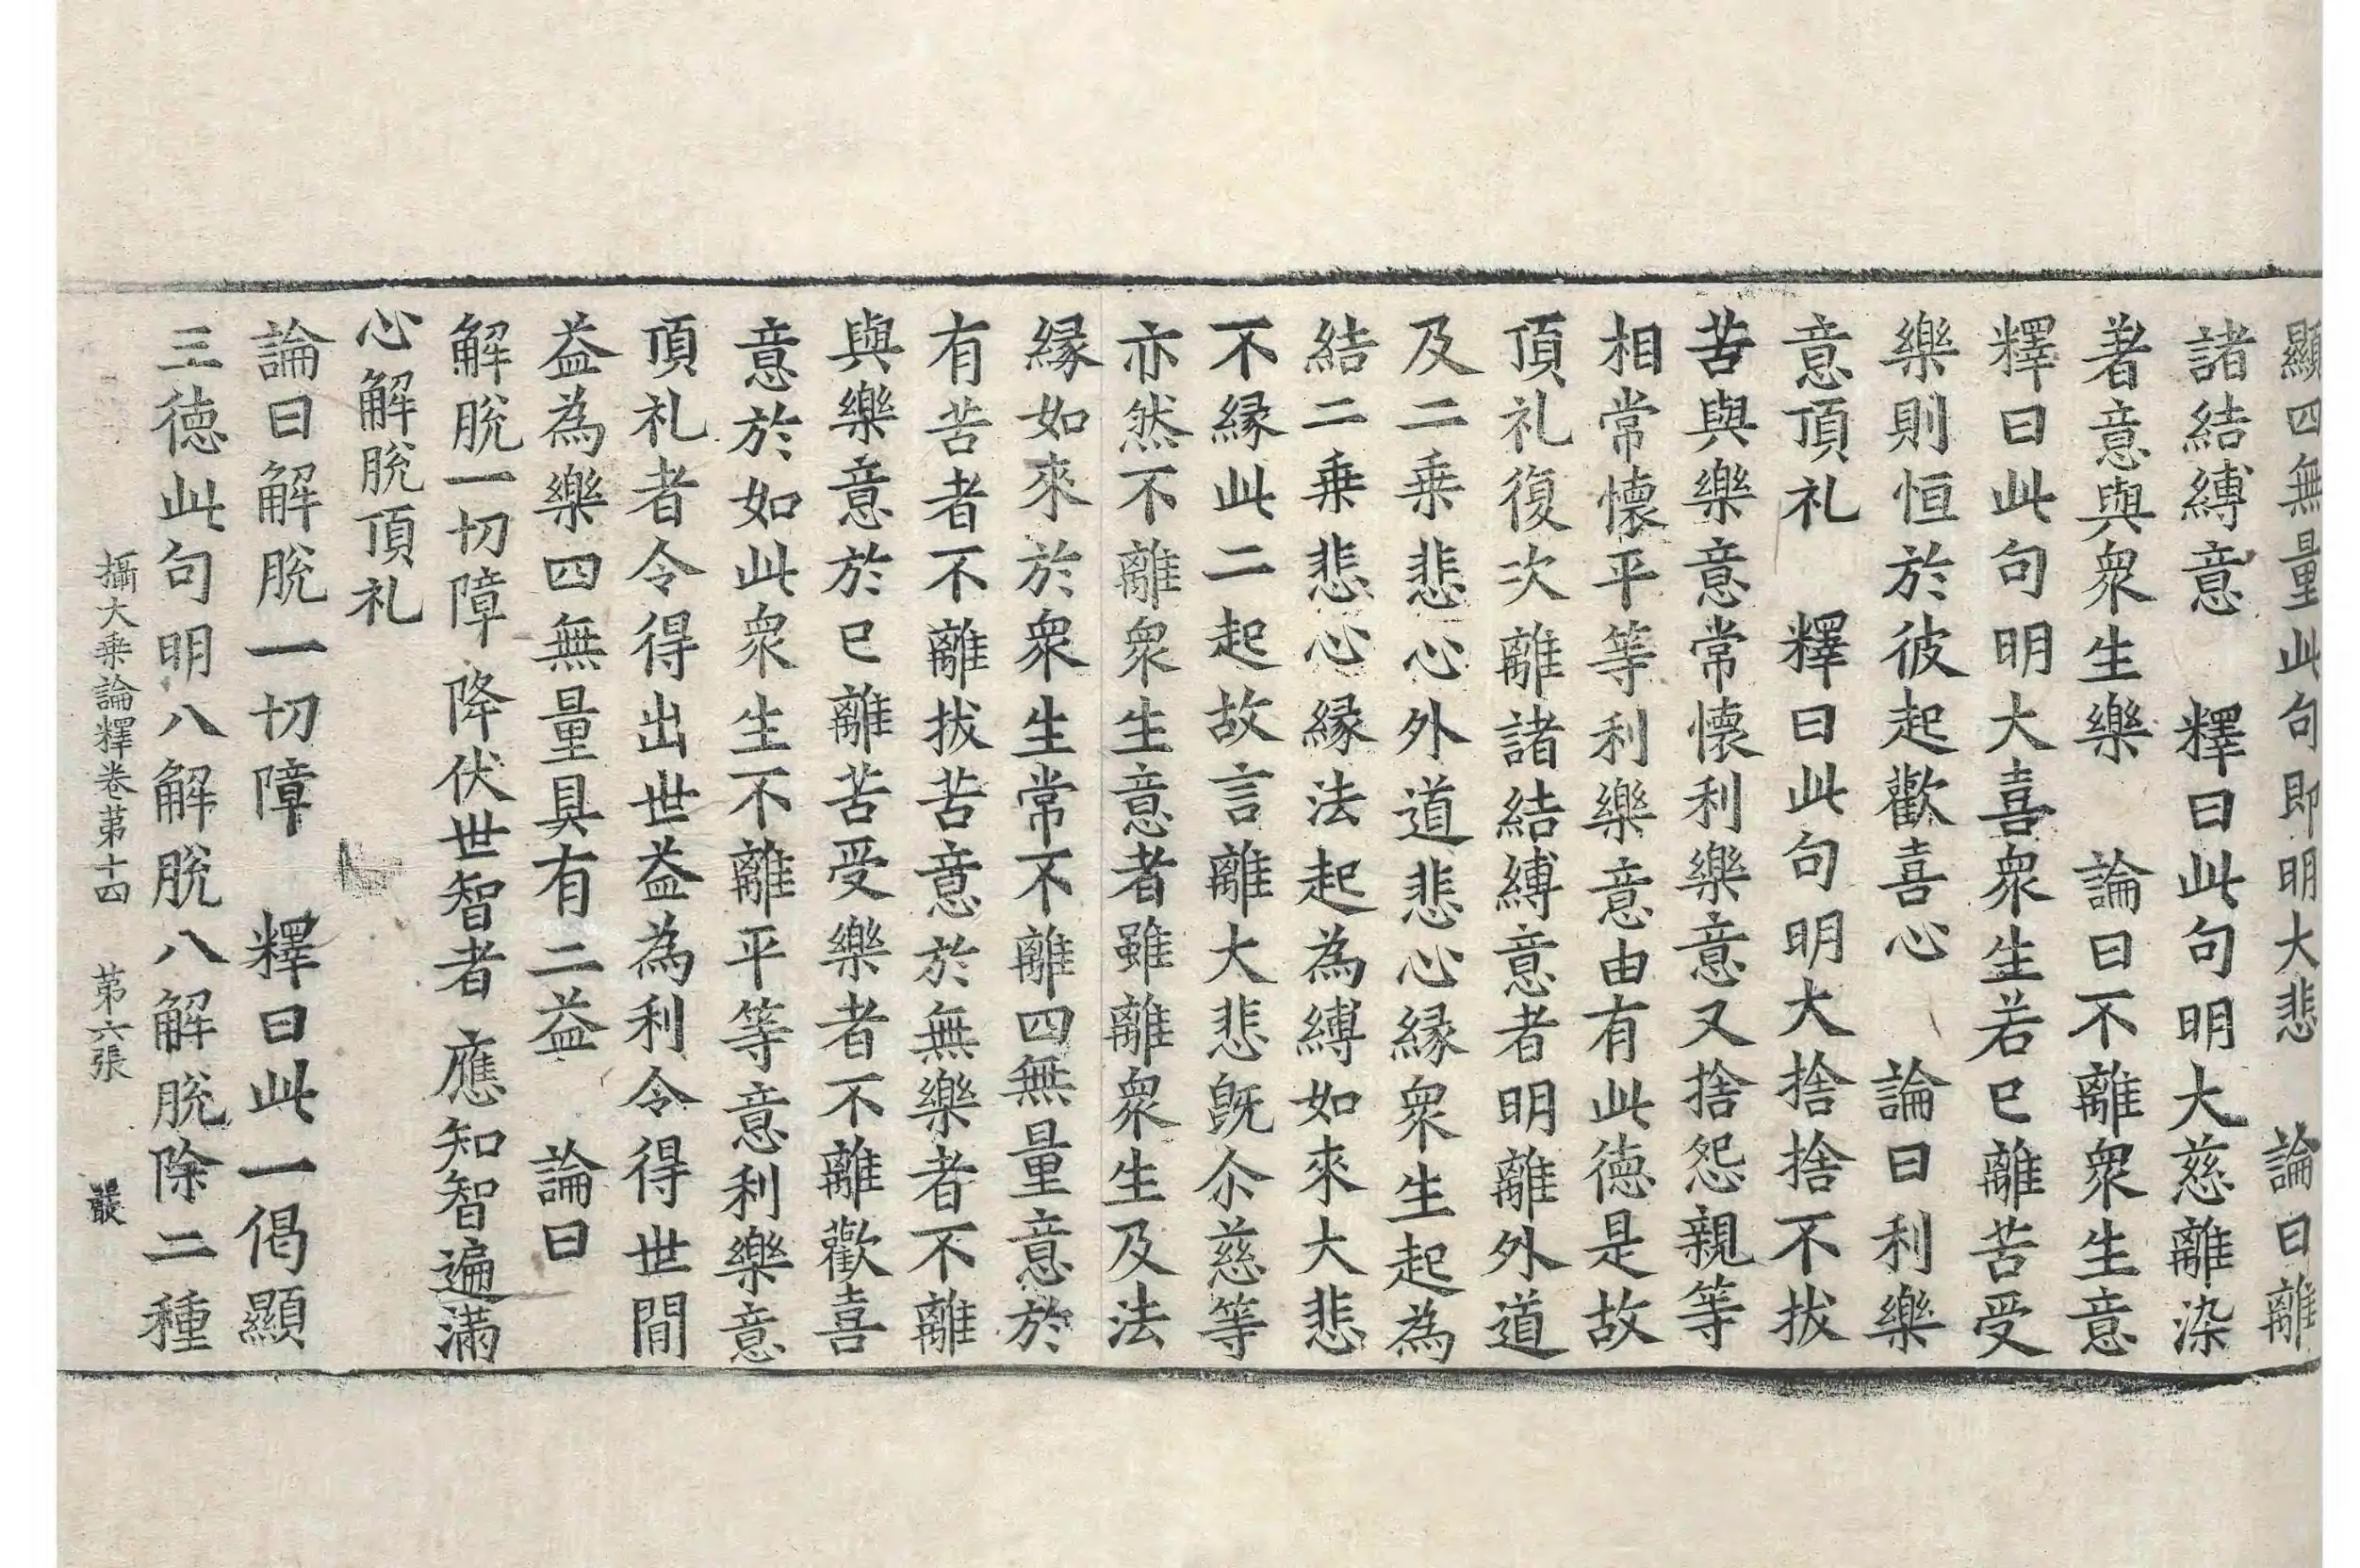 顯四無量此句即明大悲　論曰離
諸結縛意　釋曰此句明大慈離染
著意與衆生樂　論曰不離衆生意
釋曰此句明大喜衆生若已離苦受
樂則恒於彼起歡喜心　論曰利樂
意頂礼　釋曰此句明大捨捨不拔
苦與樂意常懷利樂意又捨怨親等
相常懷平等利樂意由有此德是故
頂礼復次離諸結縛意者明離外道
及二乗悲心外道悲心縁衆生起為
結二乗悲心縁法起為縛如來大悲
不縁此二起故言離大悲旣尒慈等
亦然不離衆生意者雖離衆生及法
縁如來於衆生常不離四無量意於
有苦者不離拔苦意於無樂者不離
與樂意於已離苦受樂者不離歡喜
意於如此衆生不離平等意利樂意
頂礼者令得出世益為利令得世間
益為樂四無量具有二益　論曰
解脫一切障　降伏世智者　應知智遍滿
心解脫頂礼
論曰解脫一切障　釋曰此一偈顯
三德此句明八解脫八解脫除二種
攝大乗論釋卷苐十四　苐六張　叢